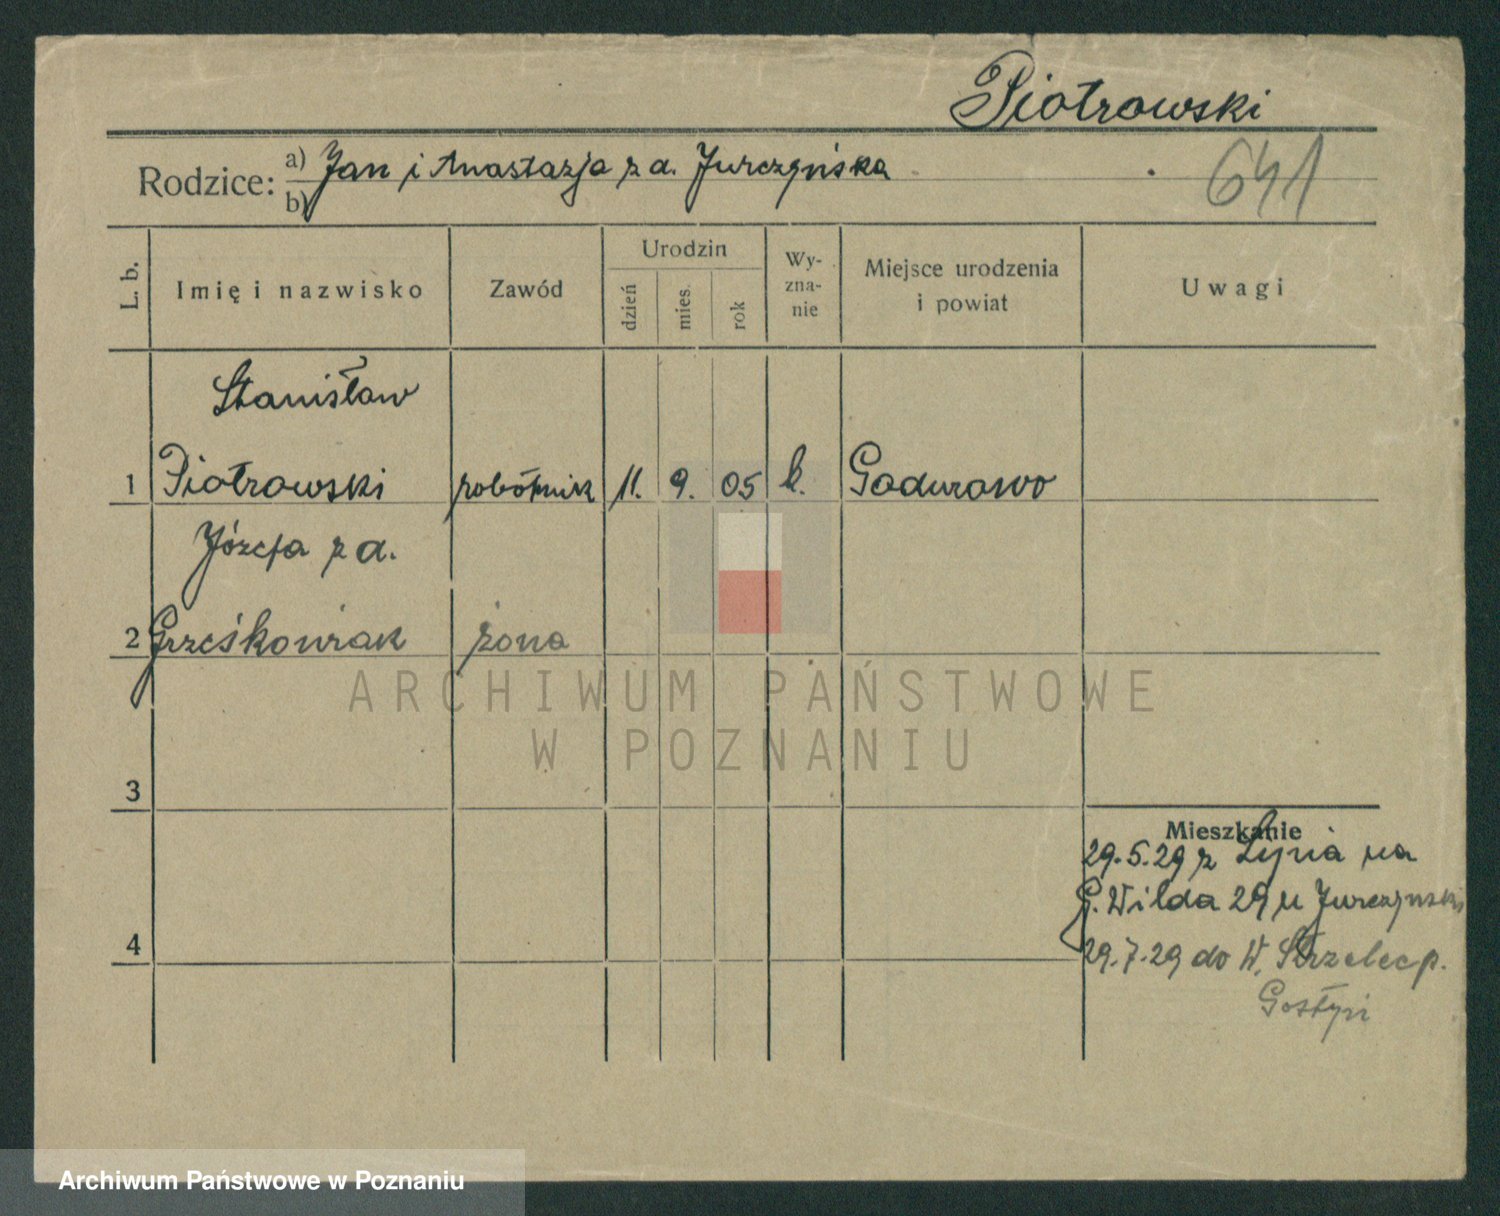 Piotrowski
Rodzice: a) Jan i Anastazja z d. Jurczyńska
b)
641
L. b.
Imię i nazwisko
Zawód
Urodzin
dzień
mies.
rok
Wy-
zna-
nie
Miejsce urodzenia
i powiat
Uwagi
Stanisław
1 Piotrowski robotnik 11. 9. 05 k. Gadurowo
Józefa z d.
2 Grześkowiak żona
3
4
Mieszkanie
29.5.29 z na
G. Wilda 29 u Jurczyński
29.7.29 do W. Strzelec p.
Gostyń
ARCHIWUM PAŃSTWOWE
W POZNANIU
Archiwum Państwowe w Poznaniu